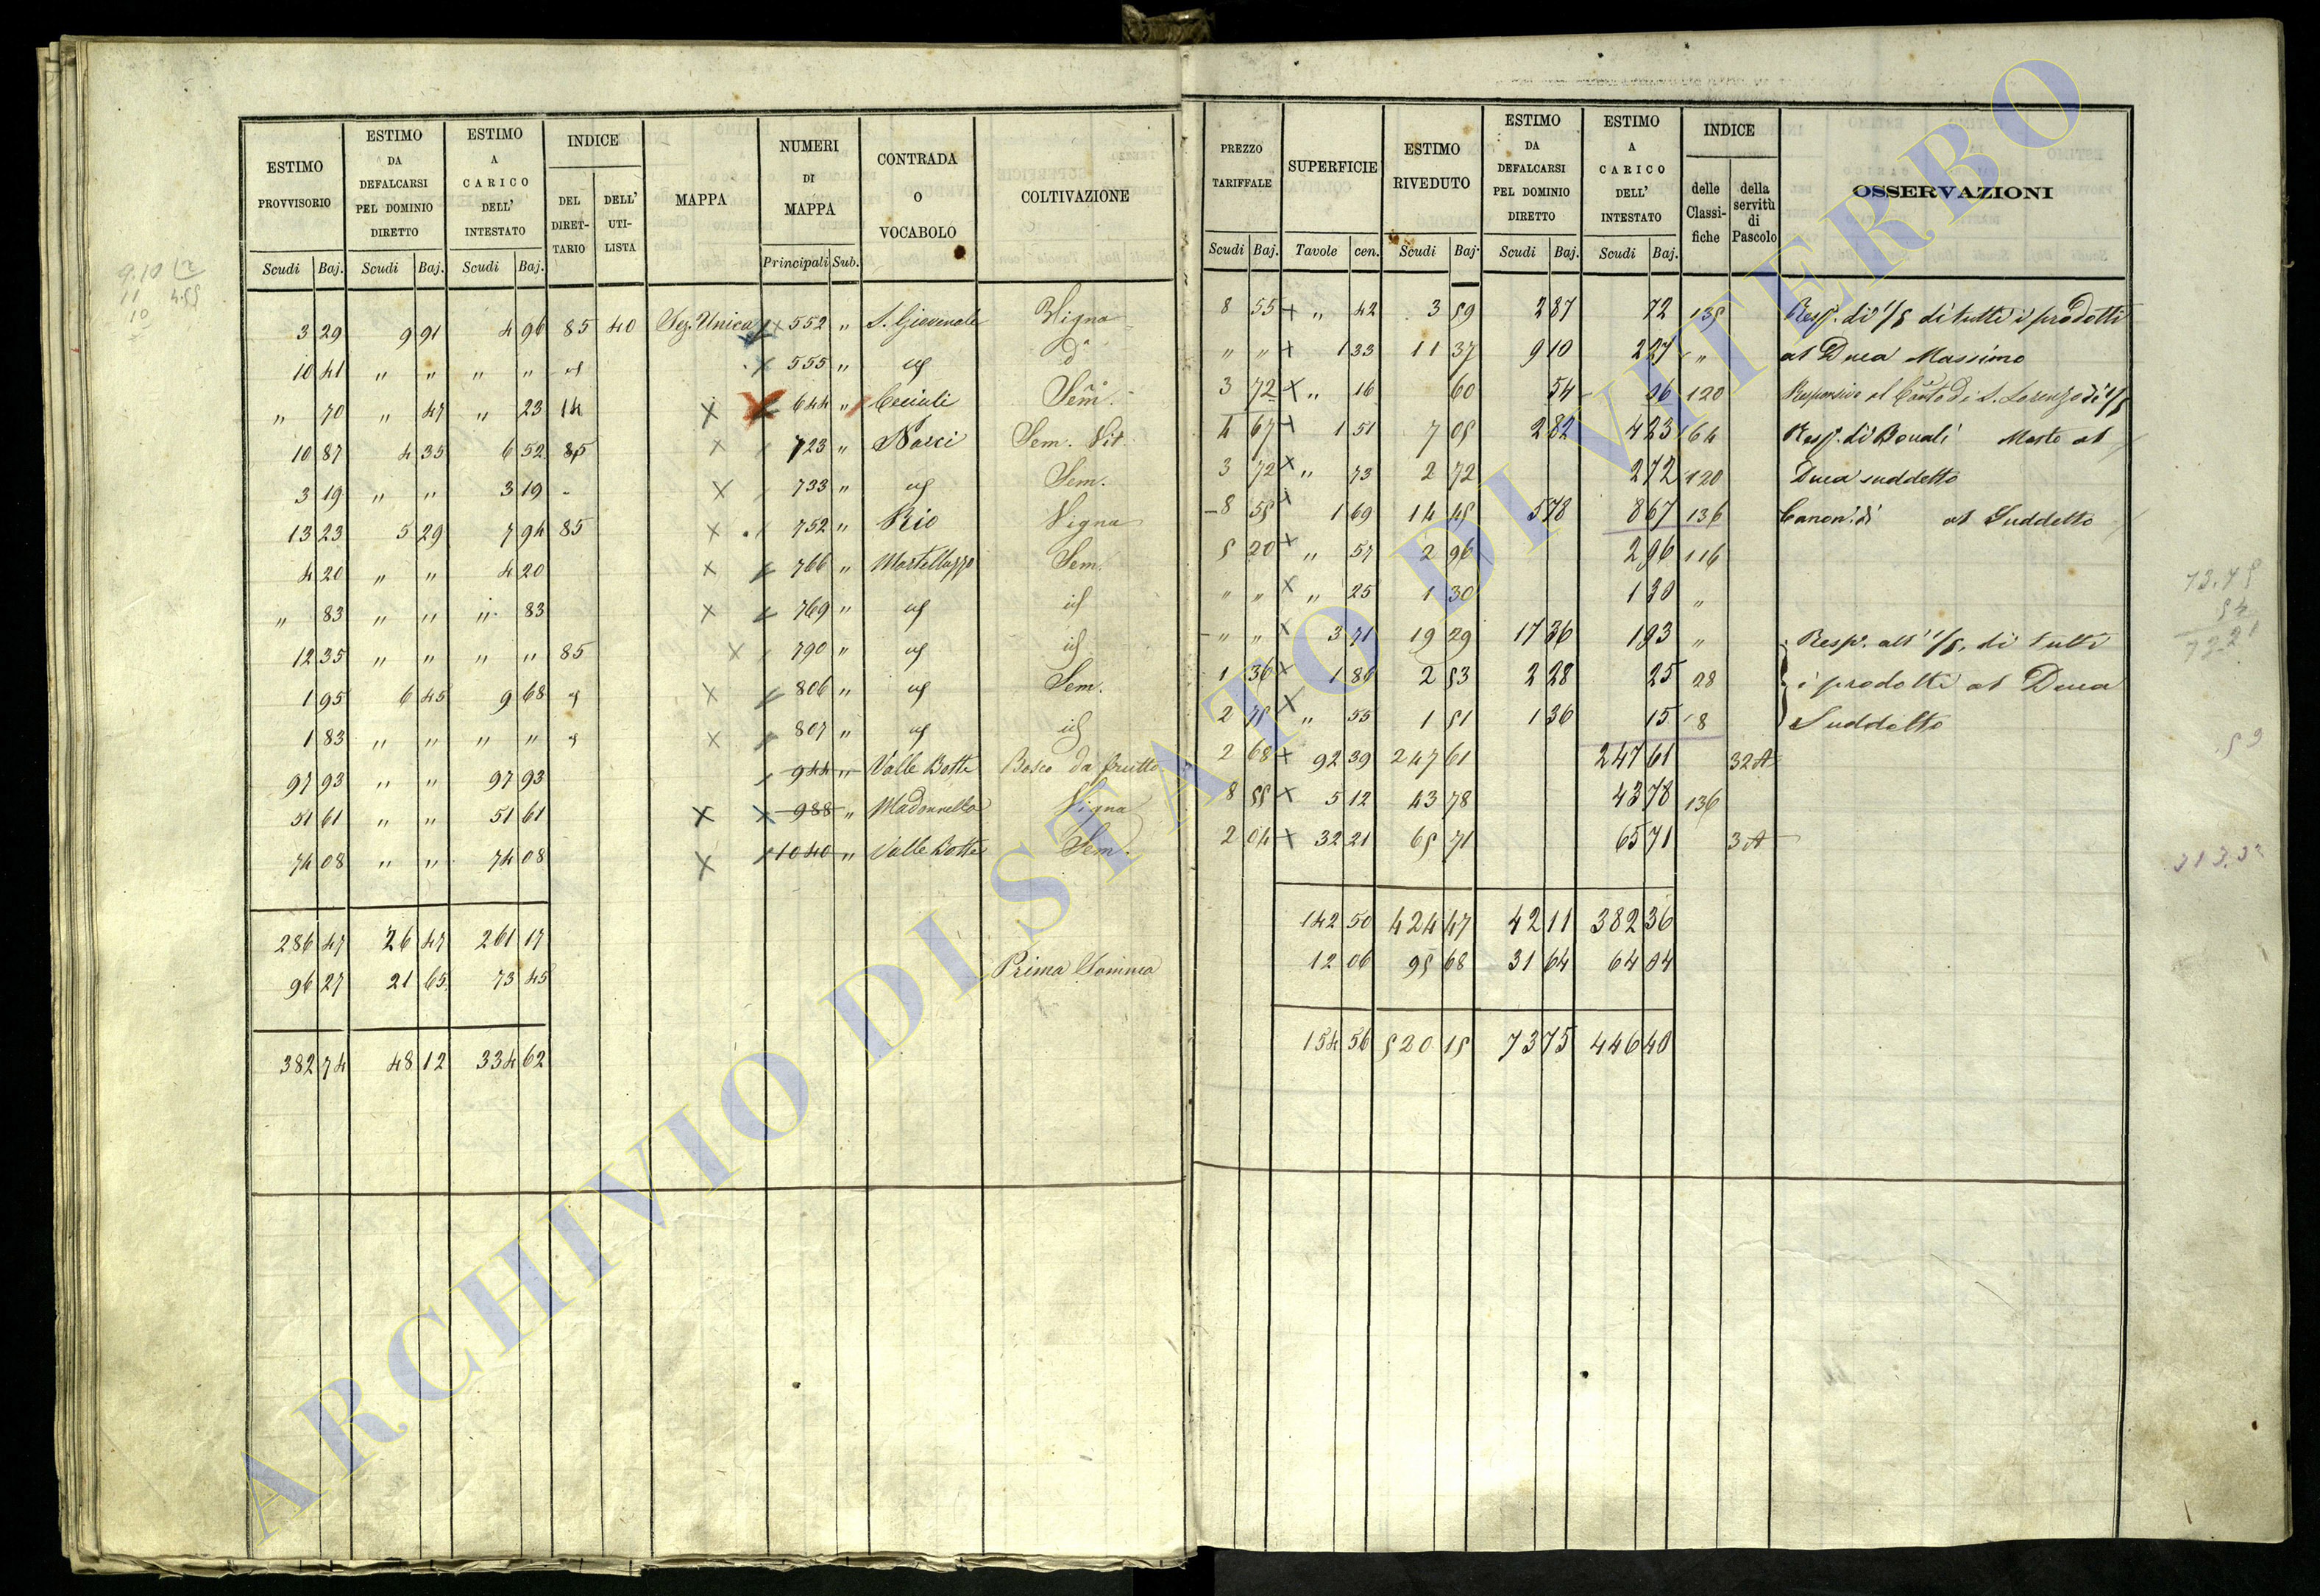 ESTIMO PROVVISORIO | ESTIMO DA DEFALCARSI PEL DOMINIO DIRETTO | ESTIMO A CARICO DELL' INTESTATO | INDICE DEL DIRETTARIO | DELL' UTILISTA | MAPPA | NUMERI DI MAPPA | CONTRADA O VOCABOLO | COLTIVAZIONE
Scudi Baj. | Scudi Baj. | Scudi Baj. | Principali Sub.
3 29 | 9 91 | 4 96 | 85 | 40 | Sez. Unica | 552 " | S. Giovenale | Vigna
10 41 | " " | " " | id | 555 " | id | da
" 70 | " 47 | " 23 | 14 | X | 644 " | Ceciuli | Sem.
10 87 | 4 35 | 6 52 | 85 | X | 723 " | Narci | Sem. Vit.
3 19 | " " | 3 19 | X | 733 " | id | Sem.
13 23 | 5 29 | 7 94 | 85 | X | 752 " | Rio | Vigna
4 20 | " " | 4 20 | X | 766 " | Martellazzo | Sem.
" 83 | " " | " 83 | X | 769 " | id | id
12 35 | " " | " " | 85 | X | 790 " | id | id
1 95 | 6 45 | 9 68 | id | X | 806 " | id | Sem.
1 83 | " " | " " | id | X | 807 " | id | id
97 93 | " " | 97 93 | 944 " | Valle Botte | Bosco da frutto
51 61 | " " | 51 61 | X | 988 " | Madonnella | Vigna
74 08 | " " | 74 08 | X | 1040 " | Valle Botte | Sem.
286 47 | 26 47 | 261 17
96 27 | 21 65 | 73 45 | Prima Somma
382 74 | 48 12 | 334 62
PREZZO TARIFFALE | SUPERFICIE | ESTIMO RIVEDUTO | ESTIMO DA DEFALCARSI PEL DOMINIO DIRETTO | ESTIMO A CARICO DELL' INTESTATO | INDICE delle Classifiche | della servitù di Pascolo | OSSERVAZIONI
Scudi Baj. | Tavole cen. | Scudi Baj. | Scudi Baj. | Scudi Baj.
8 55 | " 42 | 3 59 | 2 87 | 72 | 135 | Resp. di 1/5 di tutti i prodotti
" " | 1 33 | 11 37 | 9 10 | 2 27 | " | al Duca Massimo
3 72 | " 16 | 60 | 54 | 06 | 120 | Responsivo al di S. Lorenzo di 1/5
4 67 | 1 51 | 7 05 | 2 82 | 4 23 | 64 | Resp. di Bocali Mosto al
3 72 | " 73 | 2 72 | 2 72 | 120 | Duca suddetto
8 55 | 1 69 | 14 45 | 5 78 | 8 67 | 136 | Canon. di al Suddetto
5 20 | " 57 | 2 96 | 2 96 | 116
" " | " 25 | 1 30 | 1 30 | "
" " | 3 71 | 19 29 | 17 36 | 1 93 | " | Resp. all' 1/5 di tutti
1 36 | 1 86 | 2 53 | 2 28 | 25 | 28 | i prodotti al Duca
2 75 | " 55 | 1 51 | 1 36 | 15 | 8 | Suddetto
2 68 | 92 39 | 247 61 | 247 61 | 32 A
8 55 | 5 12 | 43 78 | 43 78 | 136
2 04 | 32 21 | 65 71 | 65 71 | 3 A
142 50 | 424 47 | 42 11 | 382 36
12 06 | 95 68 | 31 64 | 64 04
154 56 | 520 15 | 73 75 | 446 40
ARCHIVIO DI STATO DI VITERBO